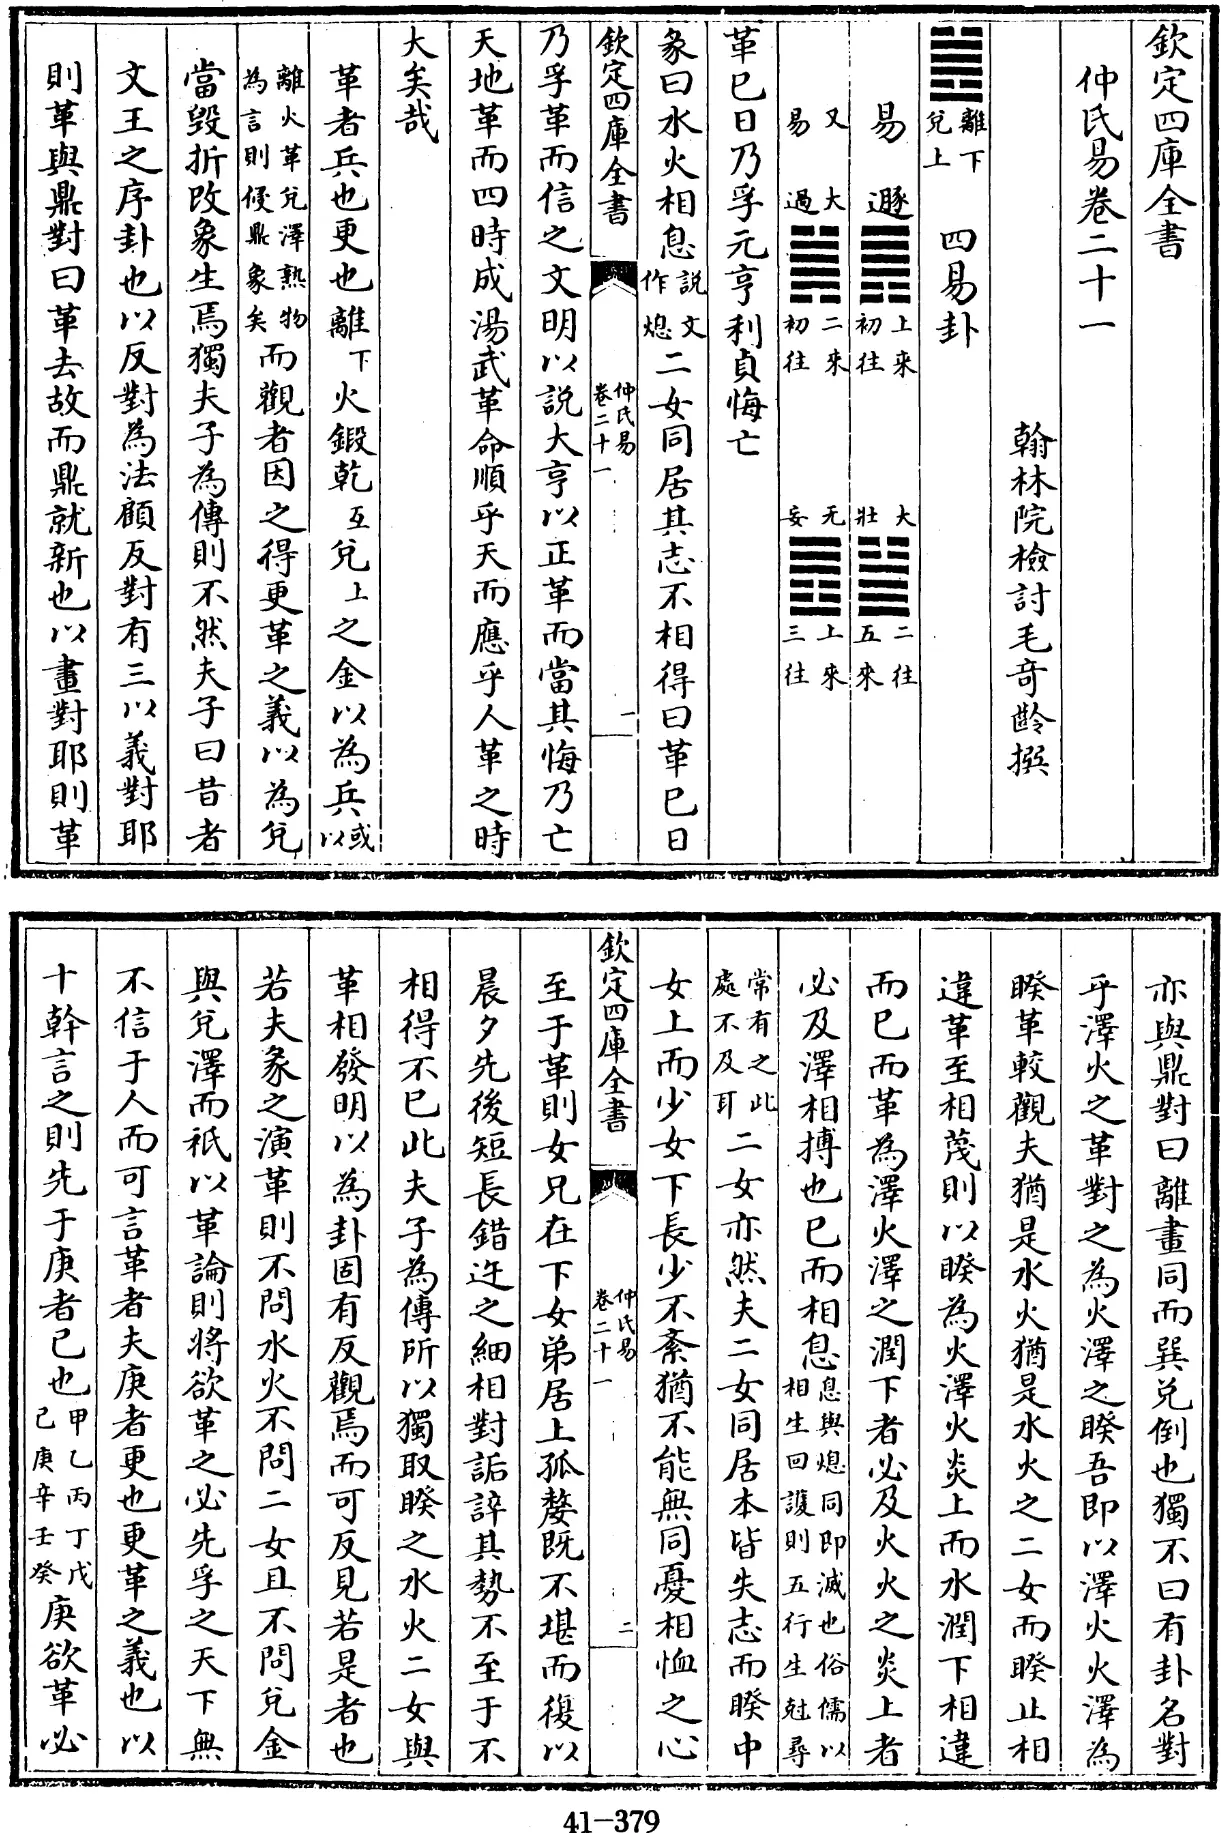 欽定四庫全書
仲氏易卷二十一
翰林院檢討毛奇齡撰
離下兌上 四易卦
易 遯 上來初往 大壯 二往五來
又易 大過 二來初往 无妄 上來三往
革巳日乃孚元亨利貞悔亡
彖曰水火相息説文作熄二女同居其志不相得曰革巳日
欽定四庫全書 仲氏易卷二十一 一
乃孚革而信之文明以説大亨以正革而當其悔乃亡
天地革而四時成湯武革命順乎天而應乎人革之時
大矣哉
革者兵也更也離下火鍛乾互兌上之金以為兵或以
離火革兌澤熟物為言則侵鼎象矣而觀者因之得更革之義以為兌
當毀折改象生焉獨夫子為傳則不然夫子曰昔者
文王之序卦也以反對為法顧反對有三以義對耶
則革與鼎對曰革去故而鼎就新也以畫對耶則革
亦與鼎對曰離畫同而巽兌倒也獨不曰有卦名對
乎澤火之革對之為火澤之睽吾即以澤火火澤為
睽革較觀夫猶是水火猶是水火之二女而睽止相
違革至相蔑則以睽為火澤火炎上而水潤下相違
而已而革為澤火澤之潤下者必及火火之炎上者
必及澤相搏也已而相息息與熄同即滅也俗儒以相生回護則五行生尅尋
常有之此處不及耳二女亦然夫二女同居本皆失志而睽中
女上而少女下長少不紊猶不能無同憂相恤之心
欽定四庫全書 仲氏易卷二十一 二
至于革則女兄在下女弟居上孤嫠既不堪而復以
晨夕先後短長錯迕之細相對詬誶其勢不至于不
相得不已此夫子為傳所以獨取睽之水火二女與
革相發明以為卦固有反觀焉而可反見若是者也
若夫彖之演革則不問水火不問二女且不問兌金
與兌澤而祇以革論則將欲革之必先孚之天下無
不信于人而可言革者夫庚者更也更革之義也以
十幹言之則先于庚者已也甲乙丙丁戊己庚辛壬癸庚欲革必
41-379